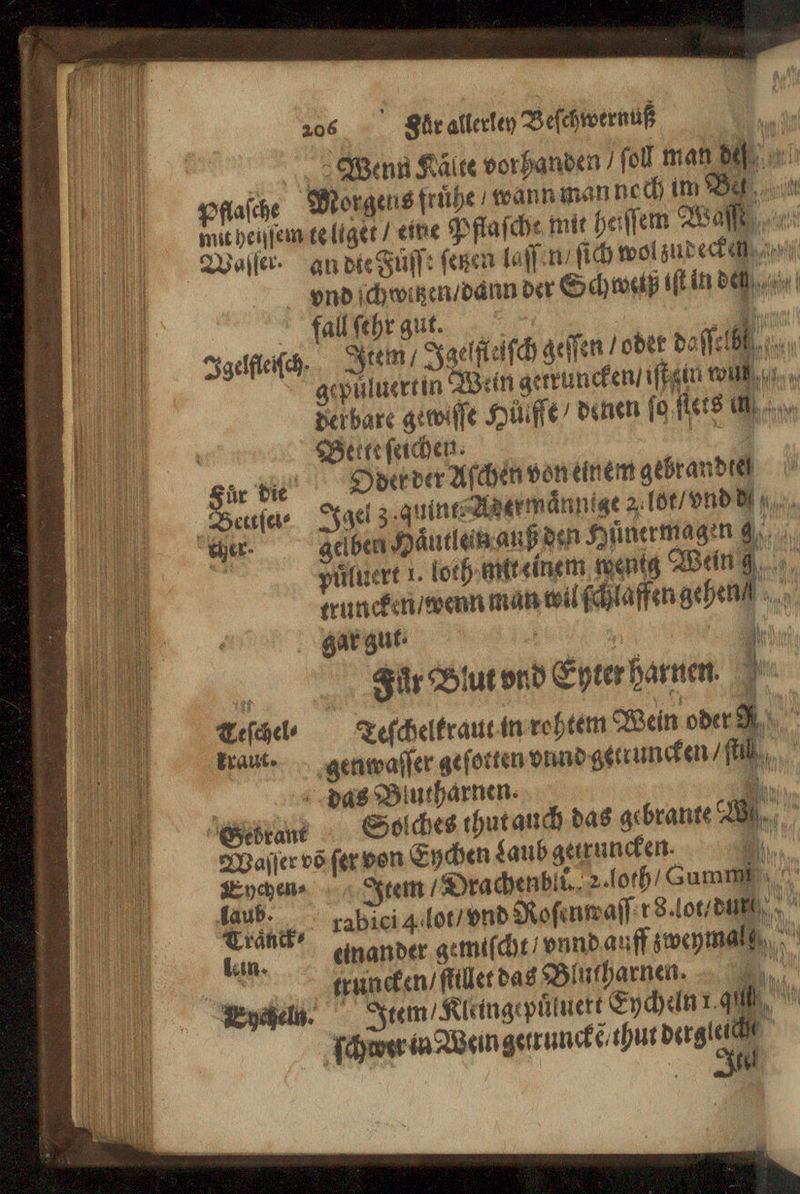 206 Fůr allerley Beſchwernuß
Wenn Kålte vorhanden / ſoll man deſ
Pflaſche Morgens frůhe / wann man noch im Bet
mit heiſſem te liget / eine Pflaſche mit heiſſem Waſſe
Waſſer. an die Fůſſe ſetzen laſſen / ſich wol zudecken
vnd ſchwitzen / dann der Schweiß iſt in dem
fall ſehr gut.
Igelfleiſch. Item / Igelfleiſch geſſen / oder daſſelbi
gepůluert in Wein getruncken / iſt ein wun
derbare gewiſſe Hůlffe / denen ſo ſtets in
Bette ſeichen.
Fůr die Oder der Aſchen von einem gebrandtẽ
Bettſei⸗ Igel 3. quint. Adermånnige 2. lot / vnd di
cher. gelben Håutlein auß den Hůnermagen g
půluert 1. loth mit einem wenig Wein g
truncken / wenn man wil ſchlaffen gehen /
gar gut.
Fůr Blut vnd Eyter harnen.
Teſchel⸗ Teſchelkraut in rohtem Wein oder R
kraut. genwaſſer geſotten vnnd getruncken / ſtil
das Blutharnen.
Gebrant Solches thut auch das gebrante W
Waſſer võ ſer von Eychen Laub getruncken.
Eychen⸗ Item / Drachenblůt 2. loth / Gummi
laub. rabici 4. lot / vnd Roſenwaſſer 8. lot / durc
Trånck⸗ einander gemiſcht / vnnd auff zweymal g
lein. truncken / ſtillet das Blutharnen.
Eycheln. Item / Klein gepůluert Eycheln 1. qui
ſchwer in Wein getrunckẽ / thut dergleiche